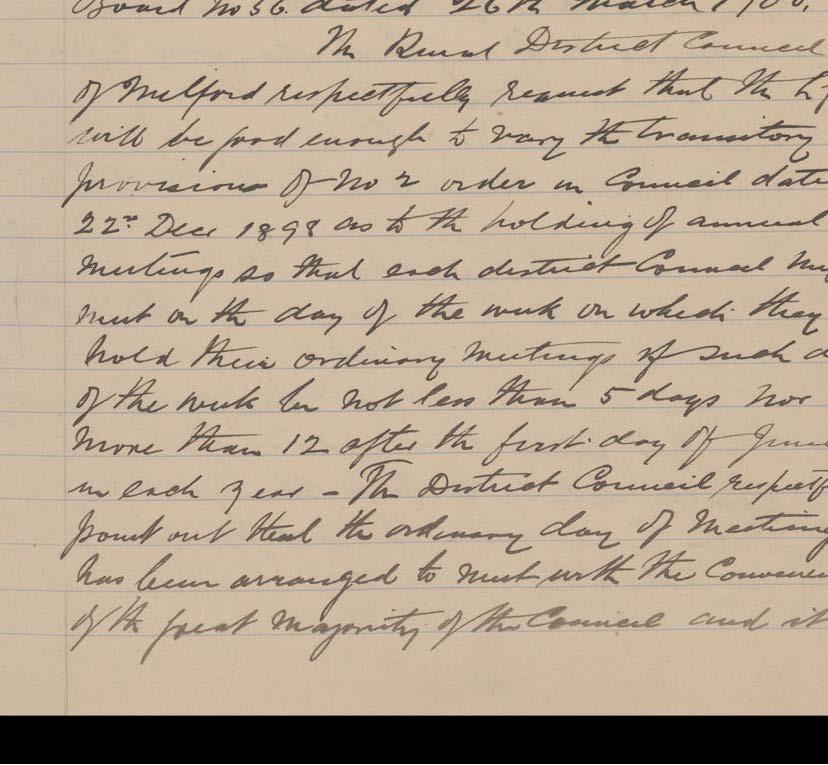 Board No 56. dated 26th March 1900.
The Rural District Council
of Milford respectfully request that the
will be good enough to vary the transitory
provisions of No 2 order in Council date
22nd Decr 1898 as to the holding of annual
meetings so that each district Council
meet on the day of the week on which they
hold their ordinary meetings if such d
of the week be not less than 5 days nor
more than 12 after the first day of June
in each year – The District Council respectf
point out that the ordinary day of Meeting
has been arranged to meet with the Convenien
of the great majority of the Council and it